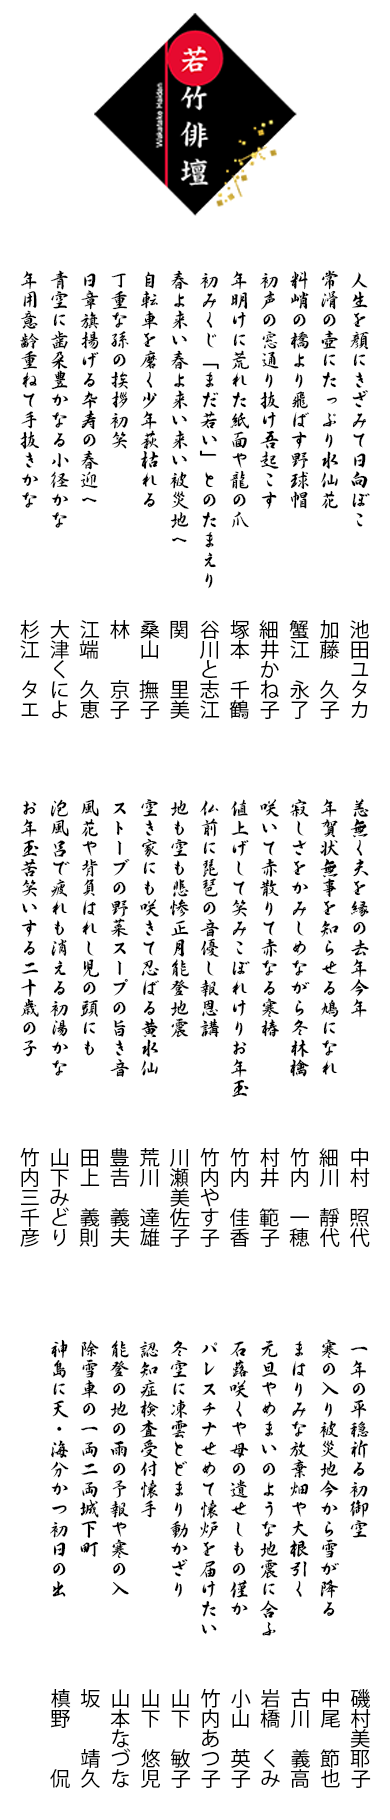 若竹俳壇
Wakatake Haidan
人生を顔にきざみて日向ぼこ
池田ユタカ
常滑の壺にたっぷり水仙花
加藤 久子
料峭の橋より飛ばす野球帽
蟹江 永了
初声の窓通り抜け吾起こす
細井かね子
年明けに荒れた紙面や龍の爪
塚本 千鶴
初みくじ「まだ若い」とのたまえり
谷川と志江
春よ来い春よ来い来い被災地へ
関 里美
自転車を磨く少年荻枯れる
桑山 撫子
丁重な孫の挨拶初笑
林 京子
日章旗揚げる卒寿の春迎へ
江端 久恵
青空に歯朶豊かなる小径かな
大津くによ
年用意齢重ねて手抜きかな
杉江 タエ
恙無く夫を縁の去年今年
中村 照代
年賀状無事を知らせる鳩になれ
細川 靜代
寂しさをかみしめながら冬林檎
竹内 一穂
咲いて赤散りて赤なる寒椿
村井 範子
値上げして笑みこぼれけりお年玉
竹内 佳香
仏前に琵琶の音優し報恩講
竹内やす子
地も空も悲惨正月能登地震
川瀬美佐子
空き家にも咲きて忍ばる黄水仙
荒川 達雄
ストーブの野菜スープの旨き音
豊吉 義夫
風花や背負はれし児の頭にも
田上 義則
泡風呂で疲れも消える初湯かな
山下みどり
お年玉苦笑いする二十歳の子
竹内三千彦
一年の平穏祈る初御空
磯村美耶子
寒の入り被災地今から雪が降る
中尾 節也
まはりみな放棄畑や大根引く
古川 義高
元旦やめまいのような地震に合ふ
岩橋 くみ
石蕗咲くや母の遺せしもの僅か
小山 英子
パレスチナせめて懐炉を届けたい
竹内あつ子
冬空に凍雲とどまり動かざり
山下 敏子
認知症検査受付懐手
山下 悠児
能登の地の雨の予報や寒の入
山本なづな
除雪車の一両二両城下町
坂 靖久
神島に天・海分かつ初日の出
槙野 侃